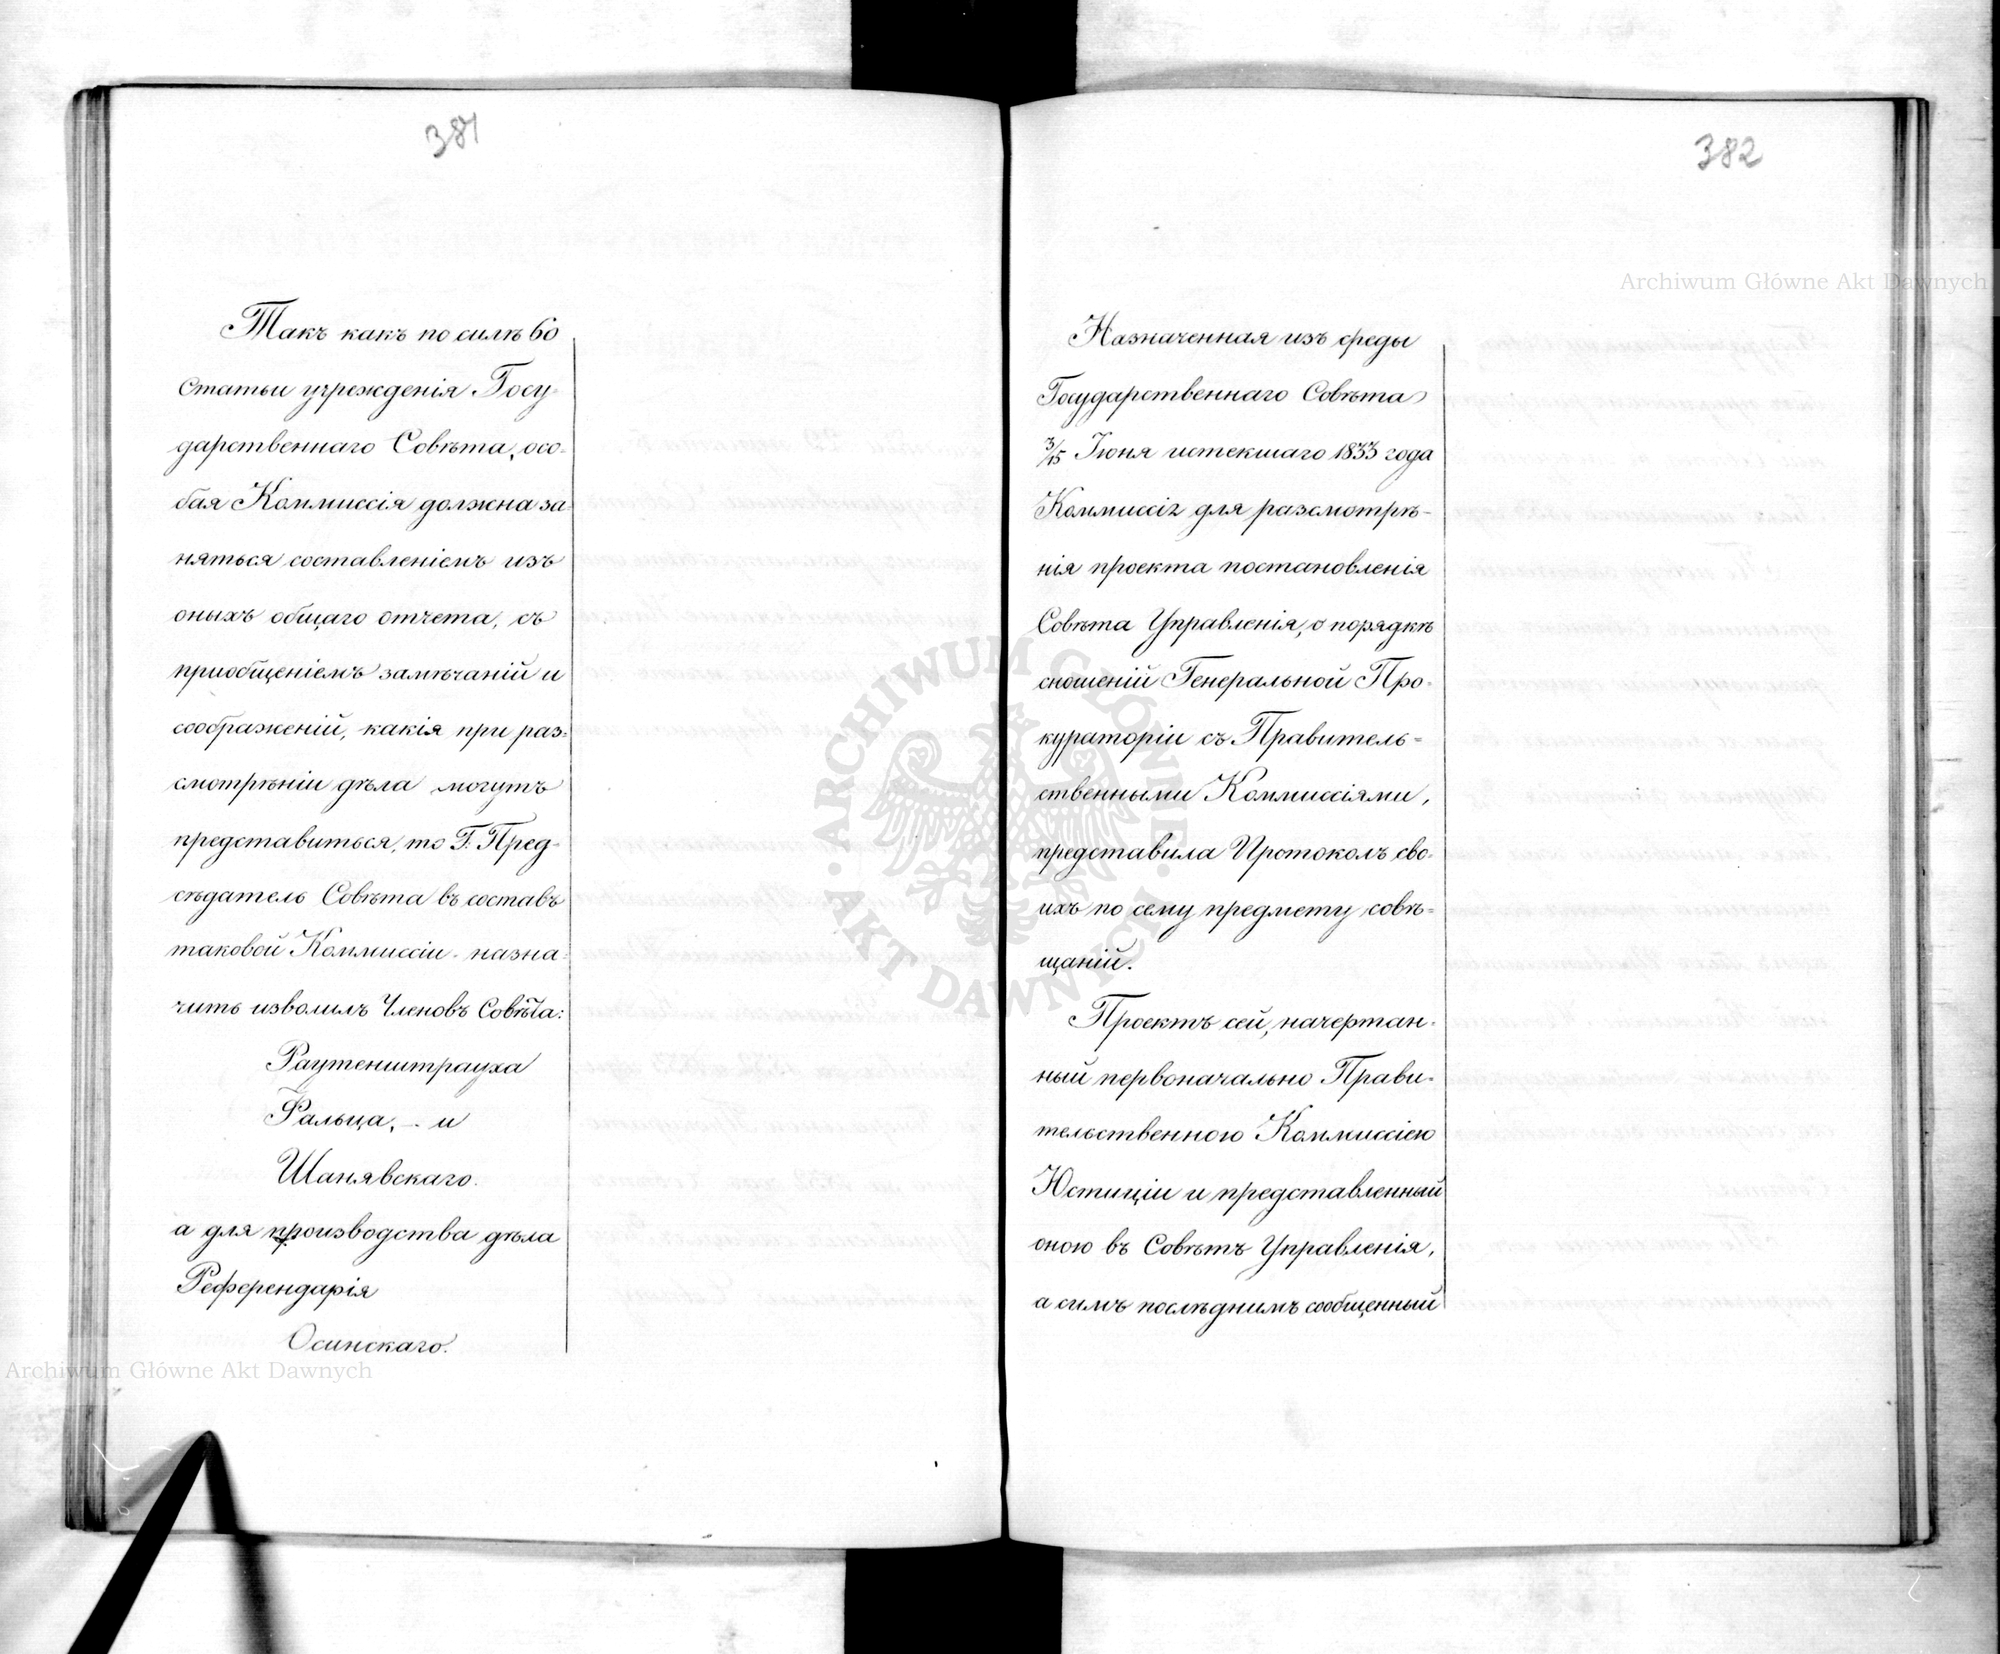 381
Такъ какъ по силѣ 60
статьи учрежденія Госу-
дарственнаго Совѣта, осо-
бая Коммиссія должна за-
няться составленіемъ изъ
оныхъ общаго отчета, съ
приобщеніемъ замѣчаній и
соображеній, какія при раз-
смотрѣніи дѣла могутъ
представиться, то Г. Пред-
сѣдатель Совѣта въ составъ
таковой Коммиссіи назна-
чить изволилъ Членовъ Совѣта:
Раутенштрауха
Фальца, - и
Шанявскаго.
а для производства дѣла
Референдарія
Осинскаго.
382
Назначенная изъ среды
Государственнаго Совѣта
3/15 Іюня истекшаго 1833 года
Коммиссія для разсмотрѣ-
нія проекта постановленія
Совѣта Управленія, о порядкѣ
сношеній Генеральной Про-
кураторіи съ Правитель-
ственными Коммиссіями,
представила Протоколъ сво-
ихъ по сему предмету совѣ-
щаній.
Проектъ сей, начертан-
ный первоначально Прави-
тельственною Коммиссіею
Юстиціи и представленный
оною въ Совѣтъ Управленія,
а симъ послѣднимъ сообщенный
Archiwum Główne Akt Dawnych
Archiwum Główne Akt Dawnych
ARCHIWUM GŁÓWNE · AKT DAWNYCH ·